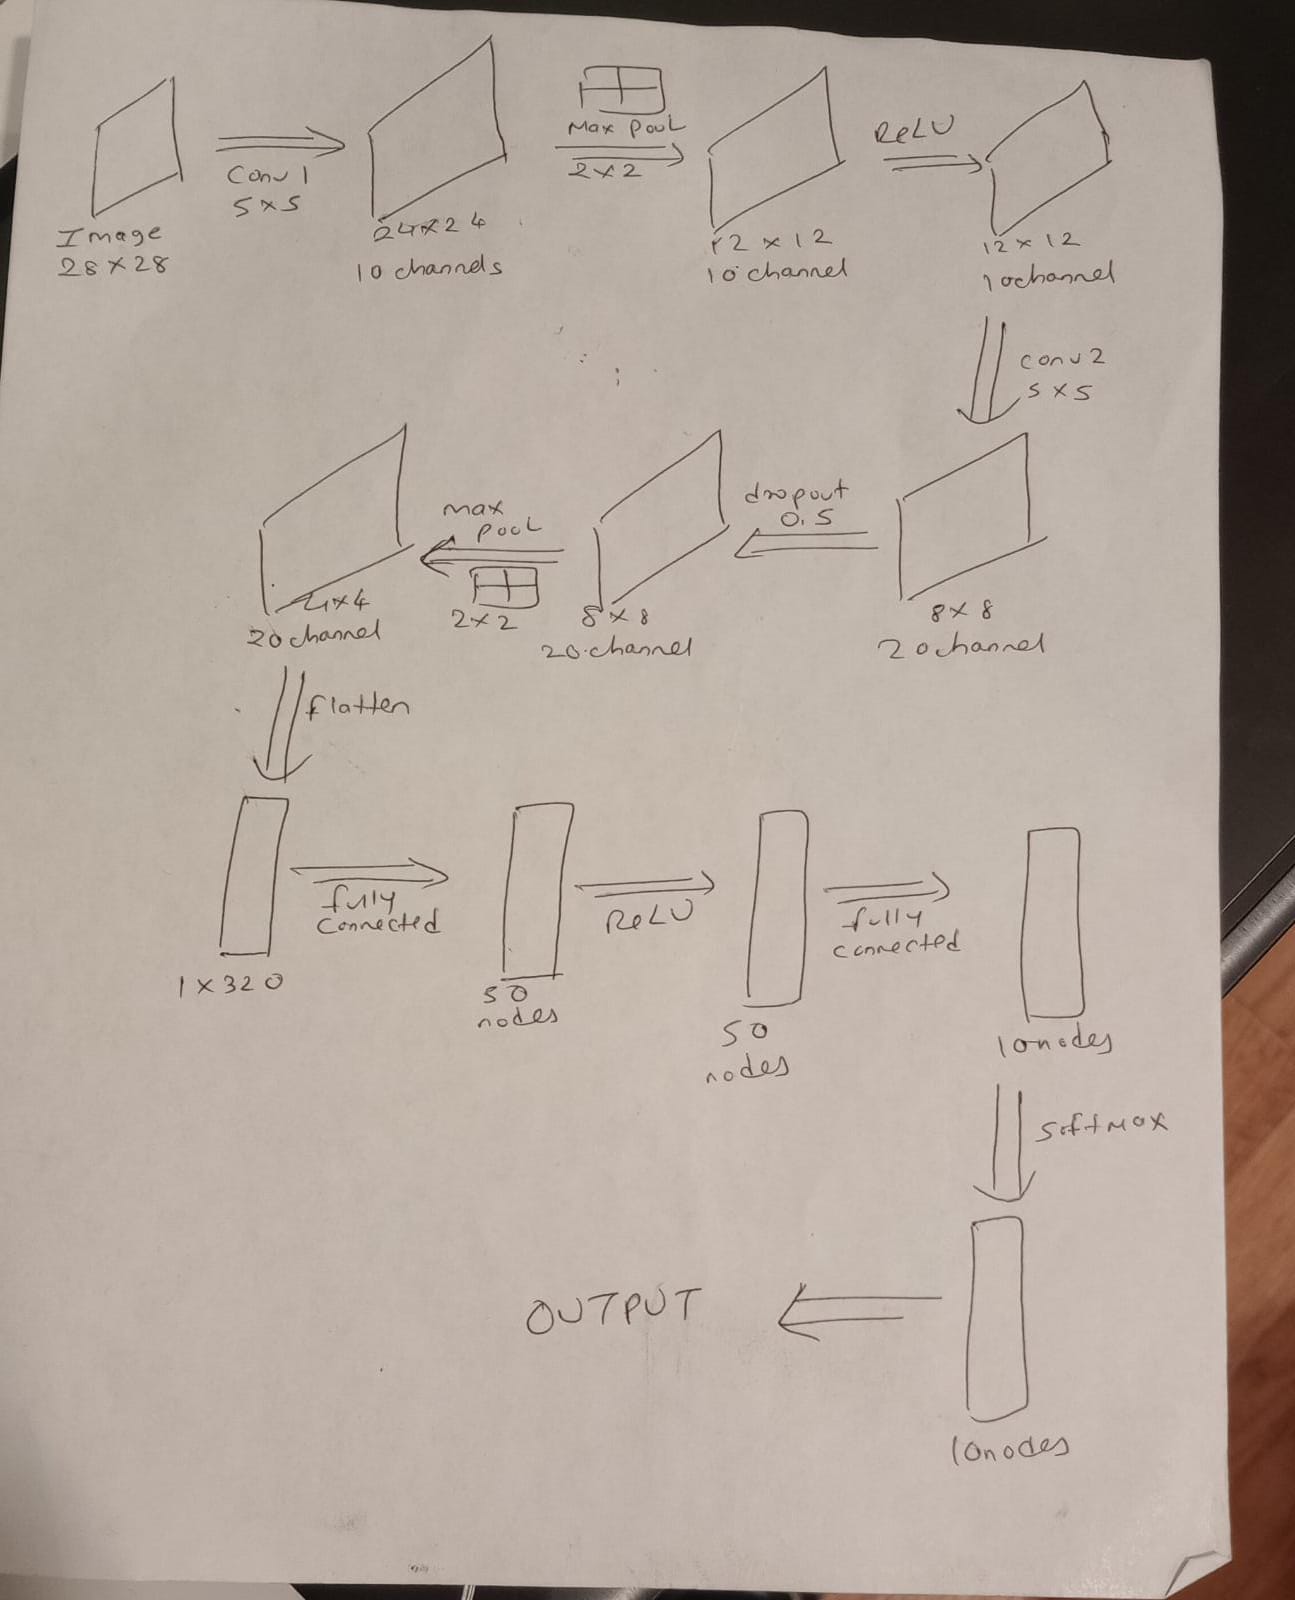 Image
28 x 28
Conv 1
5 x 5
24x24
10 channels
Max pool
2x2
12 x 12
10 channel
ReLU
12 x 12
10channel
conv2
5 x 5
8 x 8
20channel
dropout
0.5
8 x 8
20 channel
max
pool
2x2
4x4
20channel
flatten
1 x 320
fully
connected
50
nodes
ReLU
50
nodes
fully
connected
10nodes
softmax
10nodes
OUTPUT